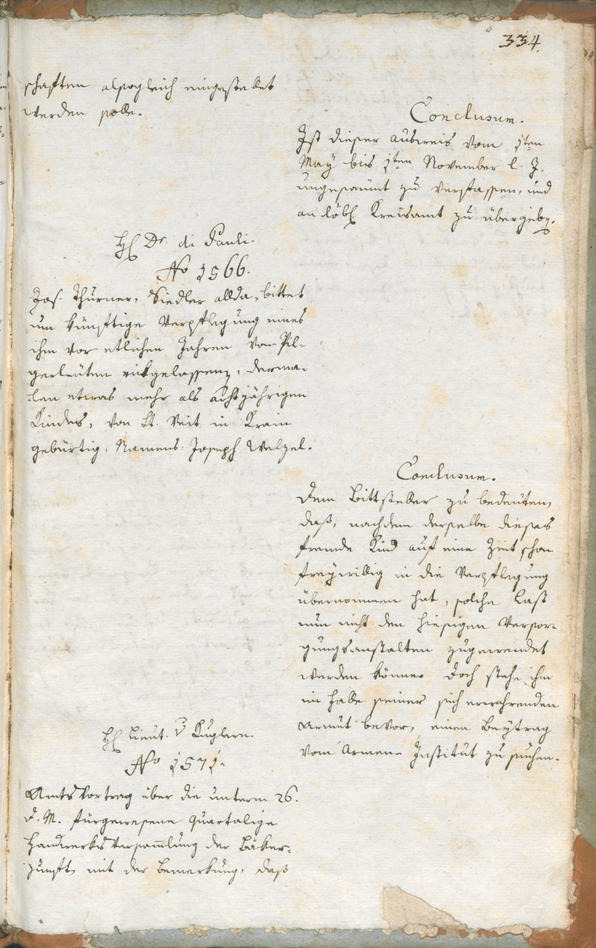 334.
schaften alsogleich eingestellet
werden solle.
Conclusum.
Ist dieser Ausweis vom 1ten
May bis 1ten November l. J.
ungesäumt zu verfassen, und
an löbl. Kreisamt zu übergeben.
H. Dr. di Pauli.
No 1566.
Jos. Thurner, Siedler allda, bittet
um künftige Verpflegung eines
ihm vor etlichen Jahren von Pil-
gersleuten rückgelassenen, derma-
len etwas mehr als achtjährigen
Kindes, von St. Veit in Krain
gebürtig, Namens Joseph Welzel.
Conclusum.
Dem Bittsteller zu bedeuten,
daß, nachdem derselbe dieses
fremde Kind auf eine Zeit schon
freywillig in die Verpflegung
übernommen hat, solche Last
nun nicht den hiesigen Versor-
gungsanstalten zugewendet
werden könne. Doch stehe ihm
im Falle seiner sich erwahrenden
Armut bevor, einen Beytrag
vom Armen-Institut zu suchen.
H. Lieut. v Kuglern.
No 1571.
Amtsvortrag über die unterm 26.
d. M. fürgewesene quartalige
Handwerksversammlung der Bäker-
zunft, mit der Bemerkung, daß